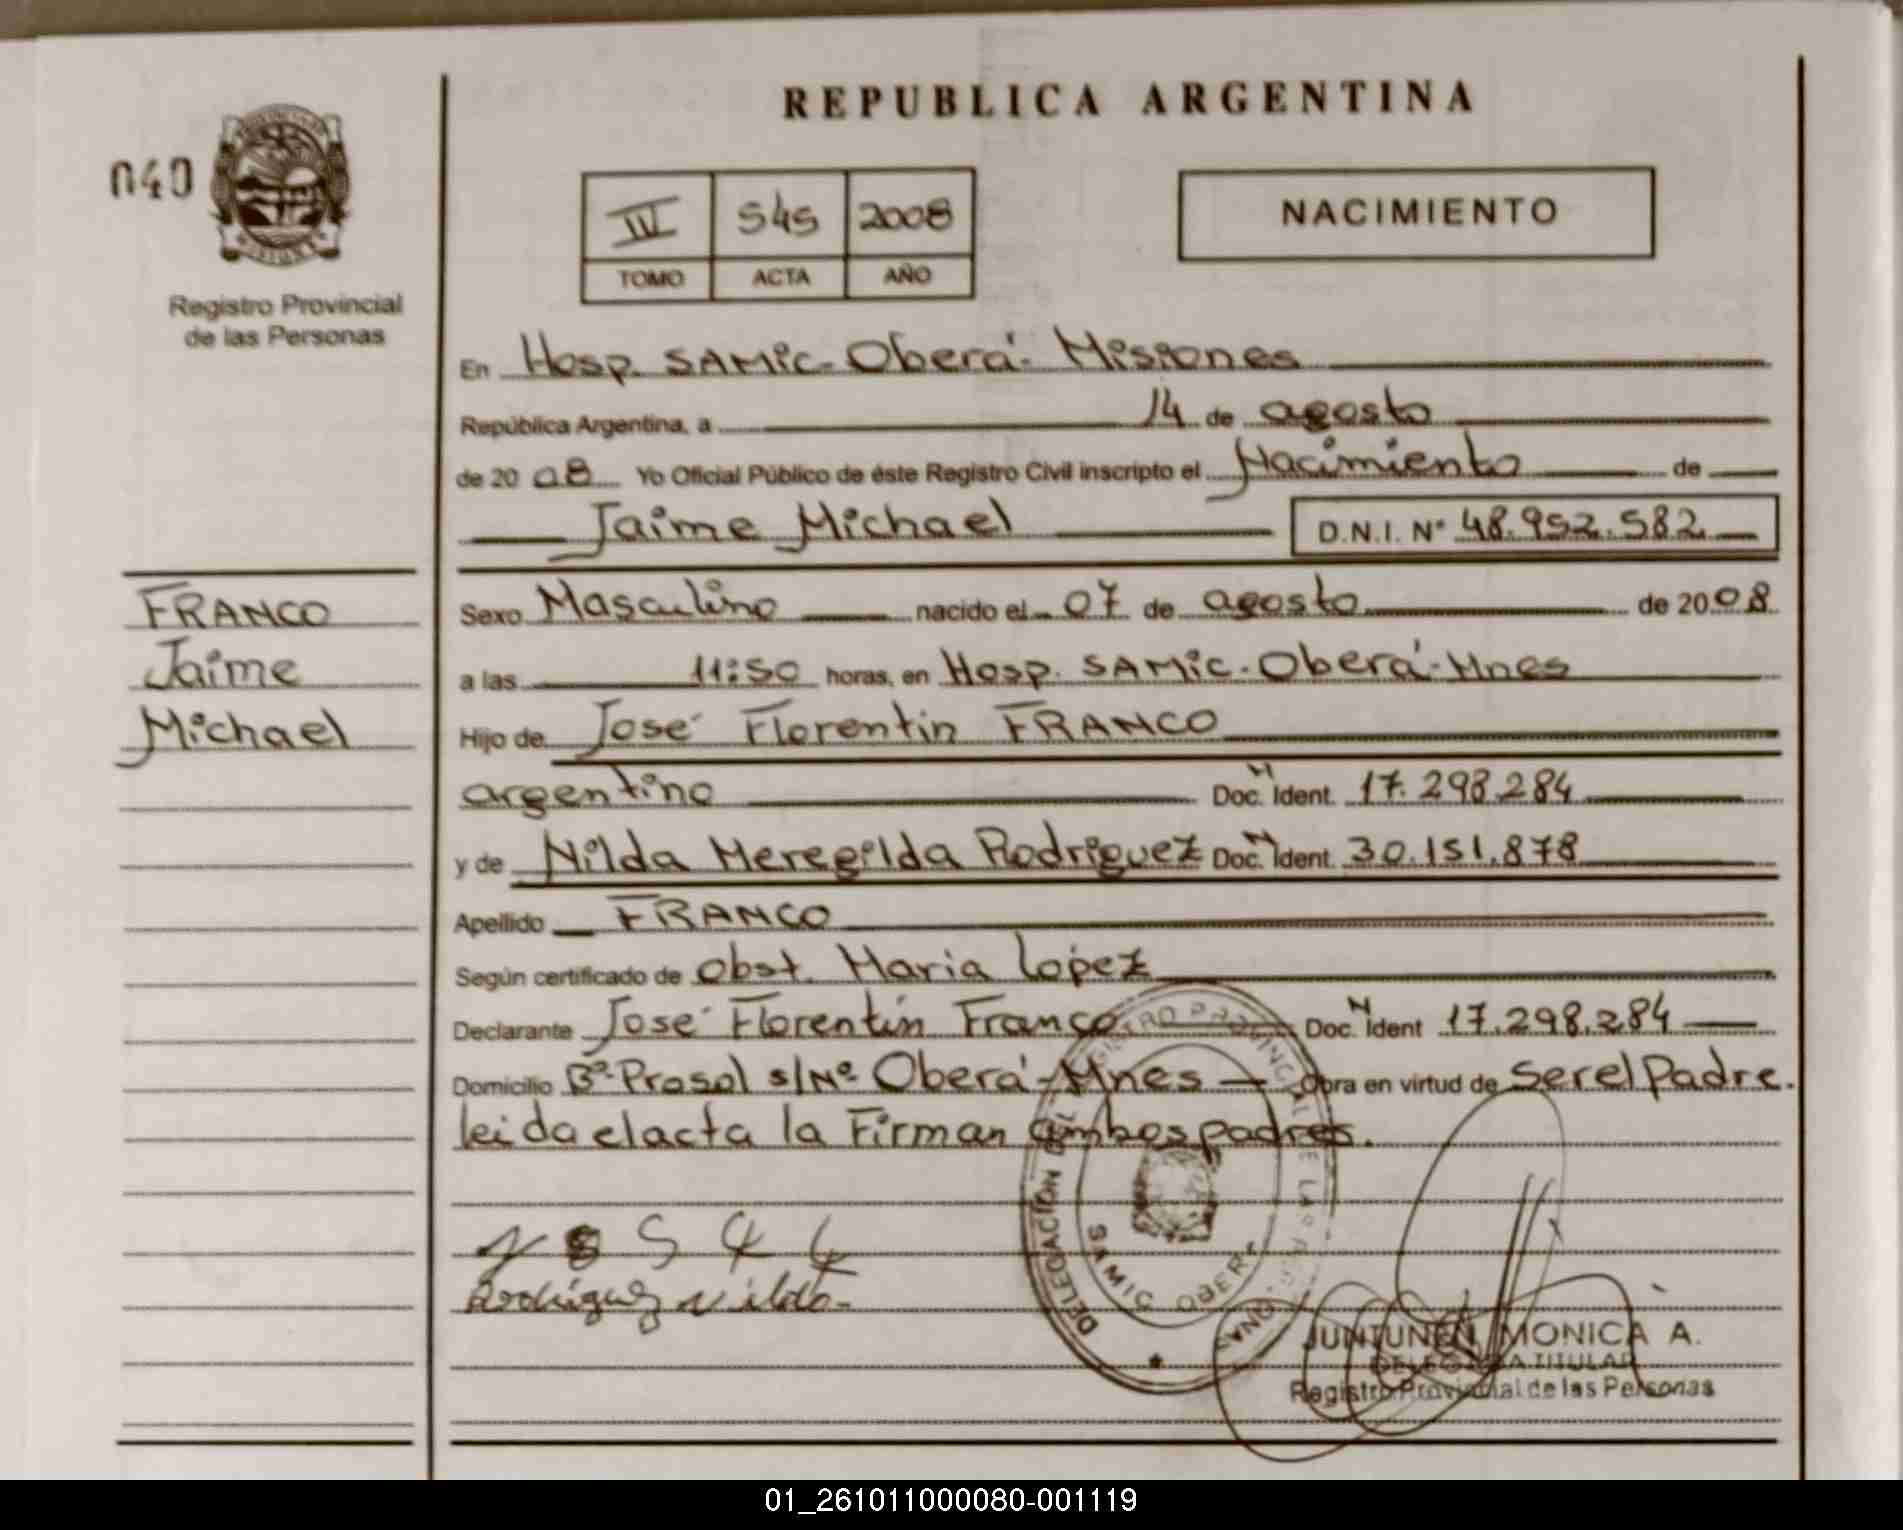 REPUBLICA ARGENTINA
040
IV 545 2008
TOMO ACTA AÑO
NACIMIENTO
Registro Provincial
de las Personas
En Hosp. SAMic-Oberá-Misiones
República Argentina, a 14 de agosto
de 2008 Yo Oficial Público de éste Registro Civil inscripto el Nacimiento de
Jaime Michael D.N.I. Nº 48.952.582
FRANCO
Jaime
Michael
Sexo Masculino nacido el 07 de agosto de 2008
a las 11:50 horas, en Hosp. SAMic-Oberá-Mnes
Hijo de José Florentin FRANCO
argentino Doc. N Ident. 17.298.284
y de Nilda Meregilda Rodriguez Doc. N Ident. 30.151.878
Apellido FRANCO
Según certificado de Obst. Maria Lopez
Declarante José Florentin Franco Doc. N Ident 17.298.284
Domicilio Bº Prosol s/Nº Oberá-Mnes Obra en virtud de Ser el Padre.
leida el acta la Firman ambos padres.
Rodriguez Nilda
DELEGACION DEL REGISTRO PROVINCIAL DE LAS PERSONAS
SAMIC OBERA
JUNTUNEN, MONICA A.
DELEGADA TITULAR
Registro Provincial de las Personas
01_261011000080-001119